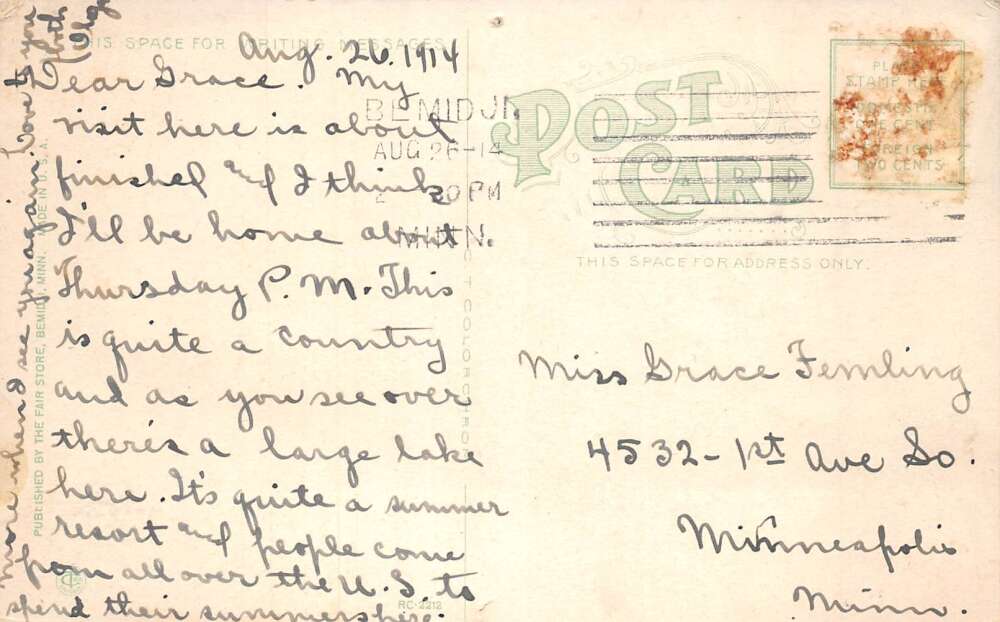 THIS SPACE FOR WRITING MESSAGES
Aug. 26. 1914
Dear Grace. My
visit here is about
finished and I think
I'll be home about
Thursday P.M. This
is quite a country
and as you see over
there's a large lake
here. It's quite a summer
resort and people come
from all over the U.S. to
spend their summers here.
more when I see you again. Love to you
both
PUBLISHED BY THE FAIR STORE, BEMIDJI, MINN. MADE IN U.S.A.
RC-2212
BEMIDJI
AUG 26-14
30 PM
MINN.
POST
CARD
PLACE
STAMP HERE
DOMESTIC
ONE CENT
FOREIGN
TWO CENTS
THIS SPACE FOR ADDRESS ONLY.
Miss Grace Femling
4532-1st Ave So.
Minneapolis
Minn.